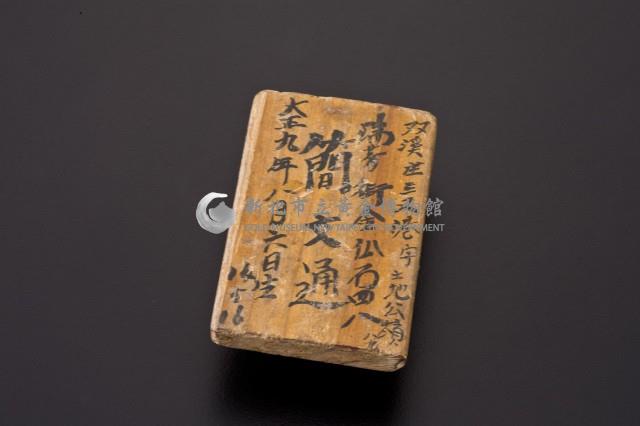 双溪庄三爪港字土地公嶺
瑞芳街金仏石四八
簡文通
大正九年八月六日立
16
新北市立黃金博物館
GOLD MUSEUM, NEW TAIPEI CITY GOVERNMENT